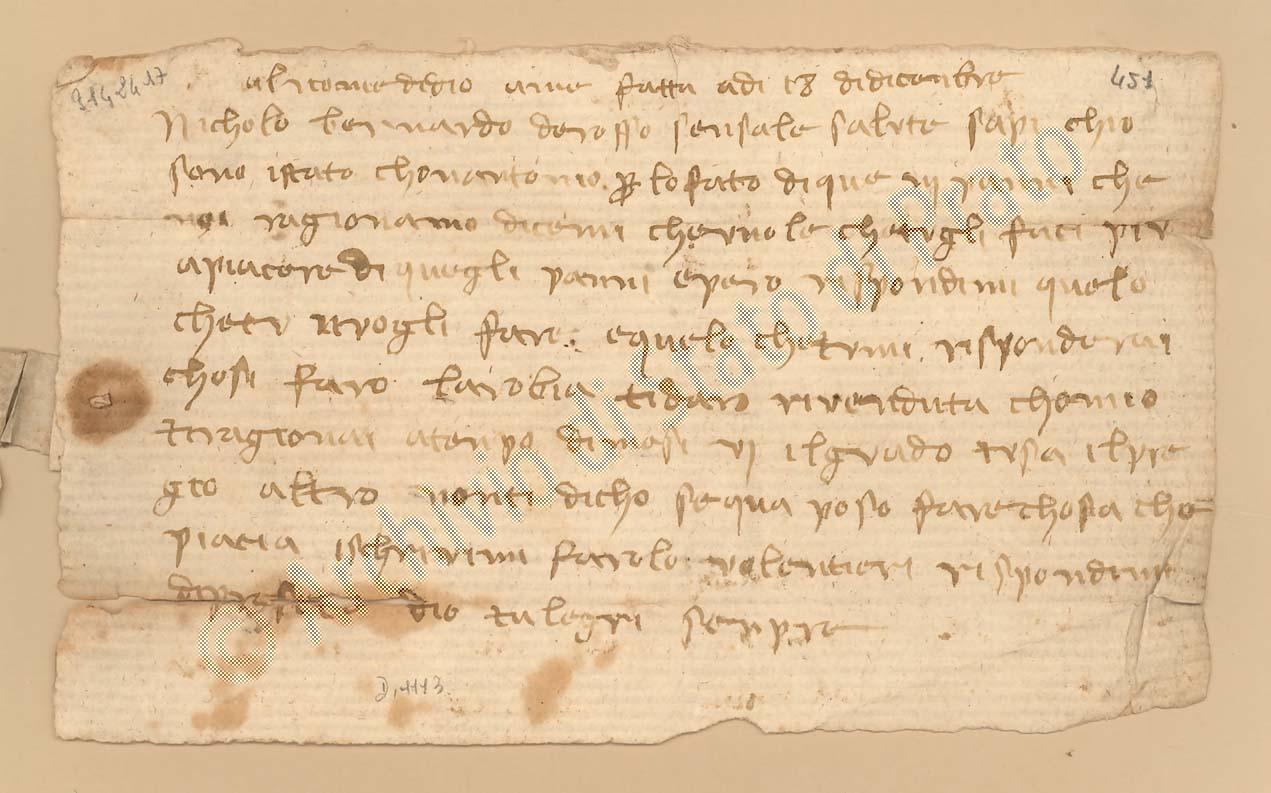 451
al nome di dio ame fatta adi 18 di dicenbre
Nicholo bernardo derosso sensale salute sapi chio
sono istato chonantonio per lo fato di que vj panni che
noi ragionamo dicemi chevuole chetugli faci piu
apiacere di quegli panni e pero rispondimi quelo
chetu vogli fare. e quelo chetumi risponderai
chosi faro la robia ti daro rivenduta chomio
tiragionai atenpo di mesi vj il grado tusa il pre
gio altro nonti dicho se qua poso fare chosa che
piacia ischrivimi farolo volentieri rispondimi
di presente dio ta legri senpre
D, 1113.
© Archivio di Stato di Prato